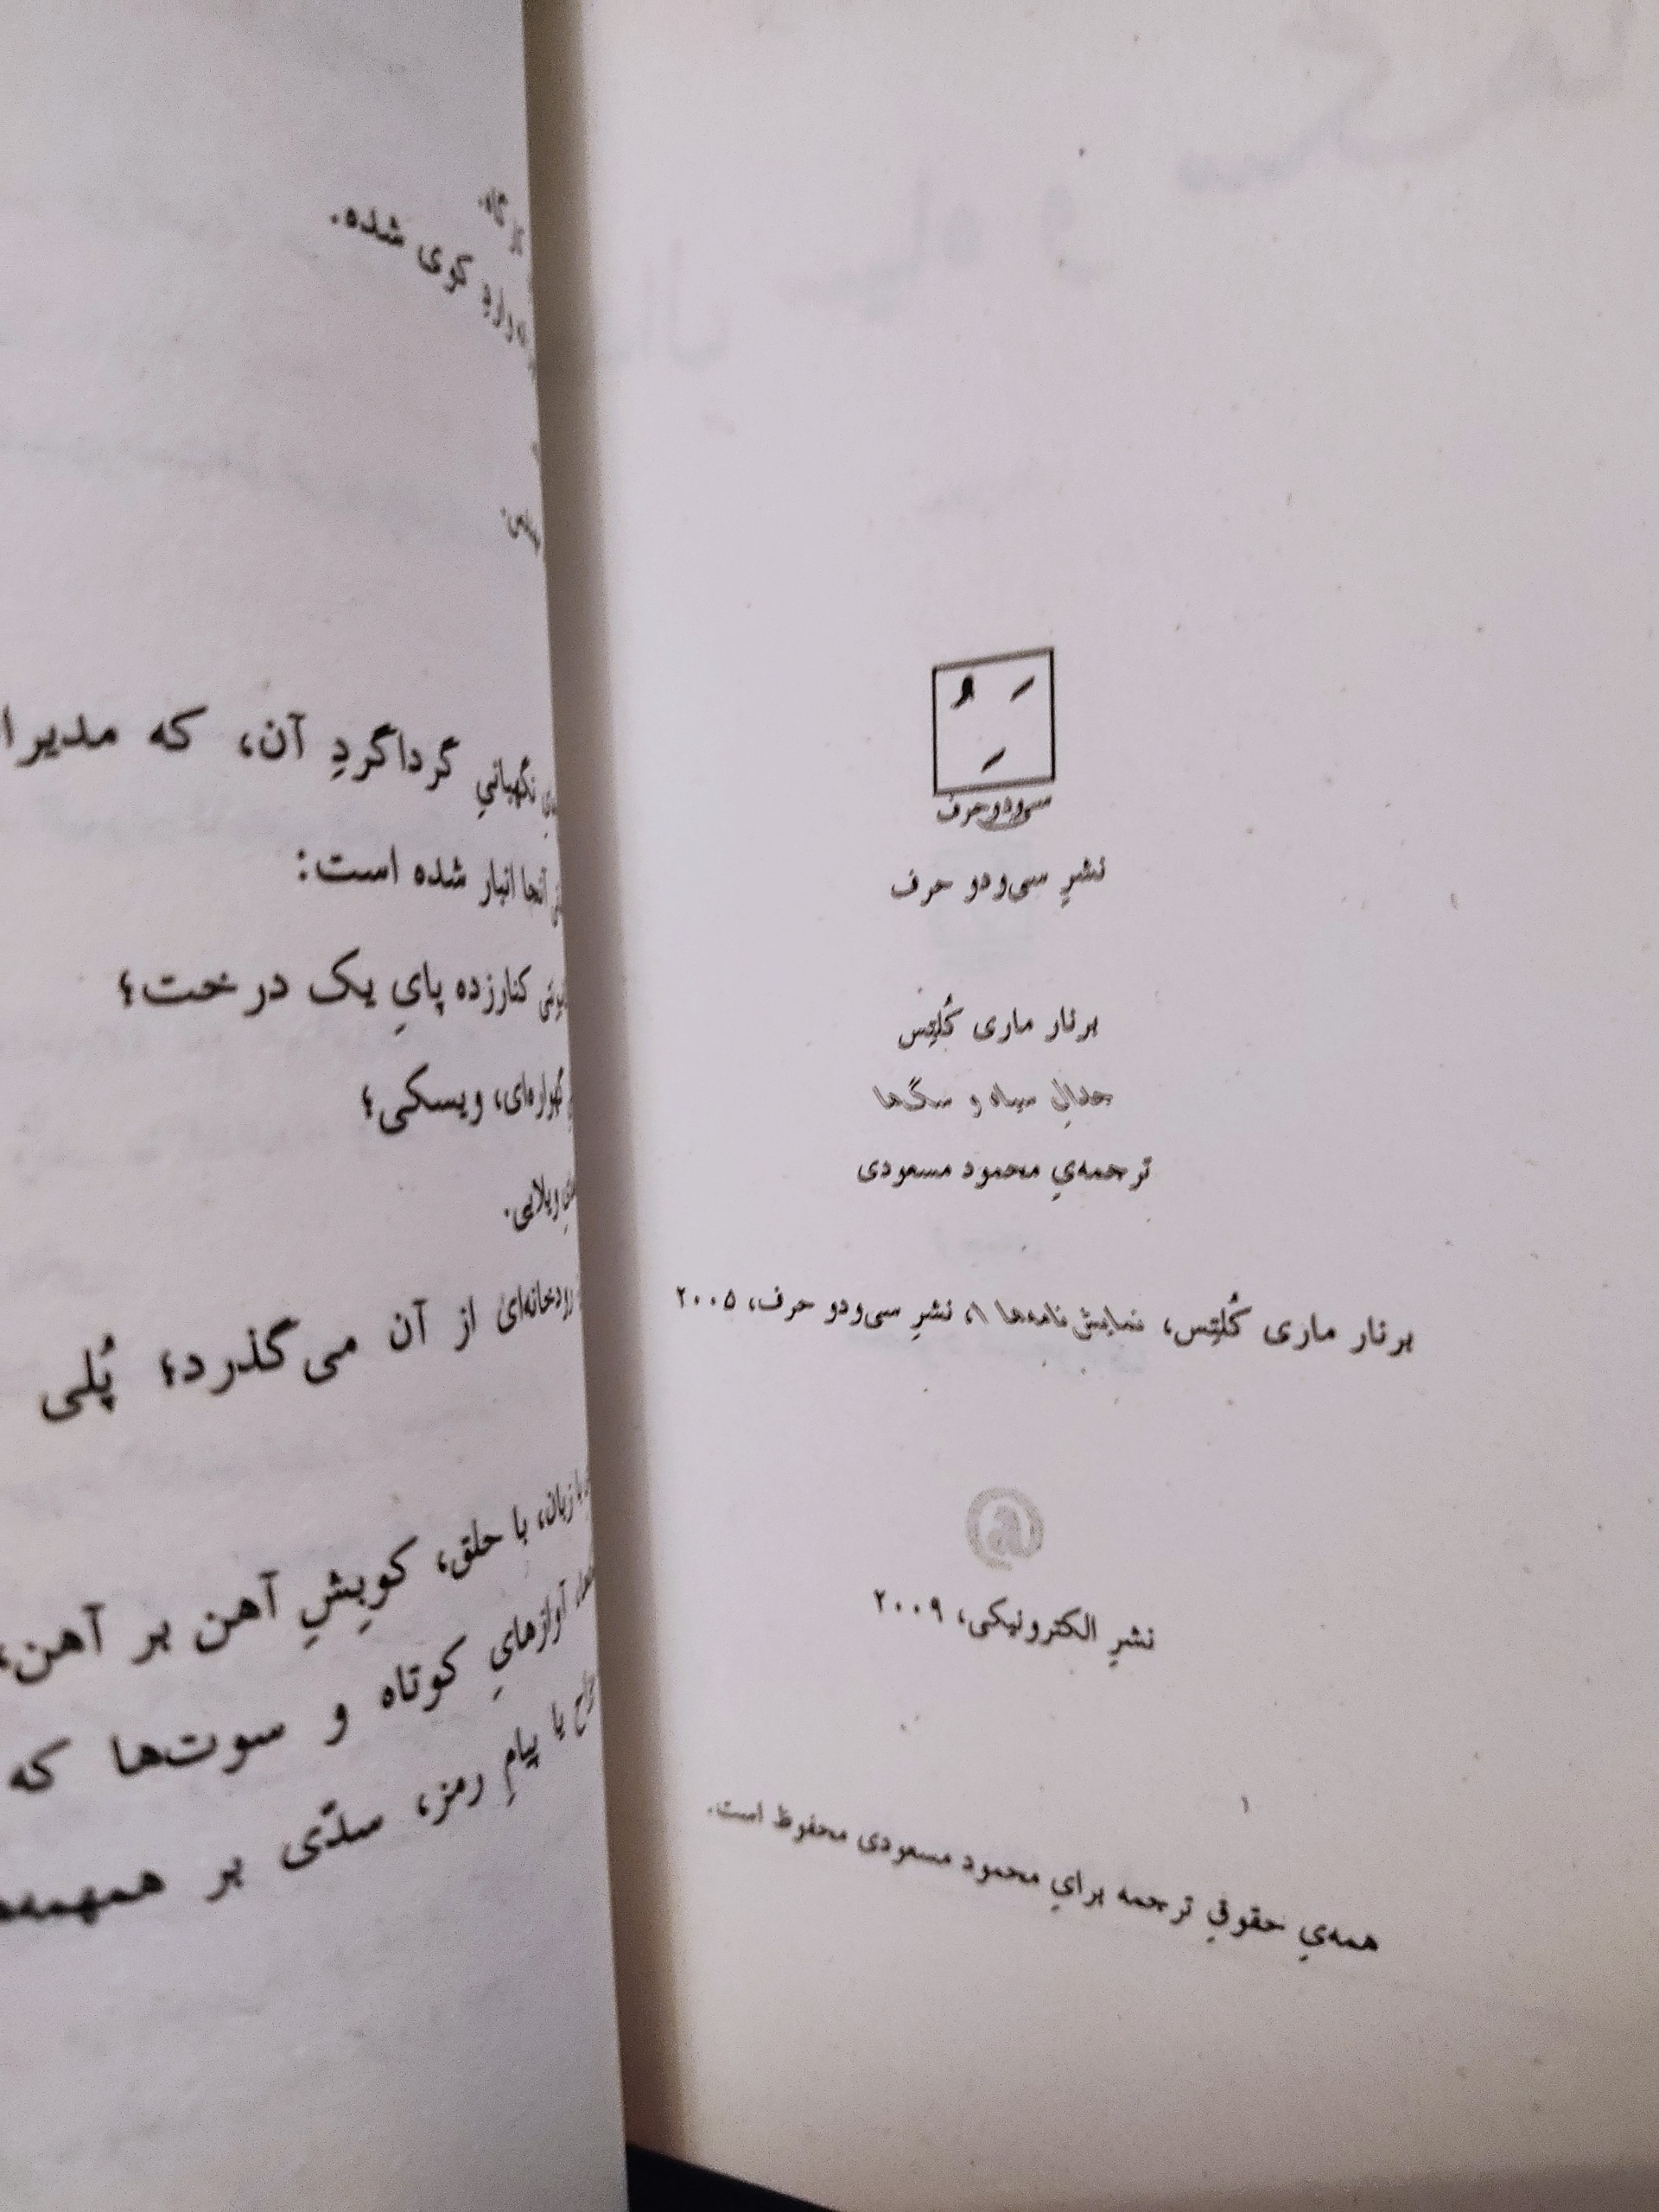 سی‌ودوحرف
نشرِ سی‌و‌دو حرف
برنار ماری کُلتِس
جدالِ سیاه و سگ‌ها
ترجمه‌یِ محمود مسعودی
برنار ماری کُلتِس، نمایش‌نامه‌ها ۱، نشرِ سی‌و‌دو حرف، ۲۰۰۵
@
نشرِ الکترونیکی، ۲۰۰۹
همه‌یِ حقوقِ ترجمه برایِ محمود مسعودی محفوظ است.
کوی شده.
نگهبانیِ گرداگردِ آن، که
آنجا انبار شده است:
کنارزده پایِ یک درخت؛
ویسکی؛
ویلایی.
رودخانه‌ای از آن می‌گذرد؛ پُلی
با زبان، با حلق، کوبِشِ آهن بر آهن،
آوازهایِ کوتاه و سوت‌ها که
یا پیامِ رمز، سدّی بر